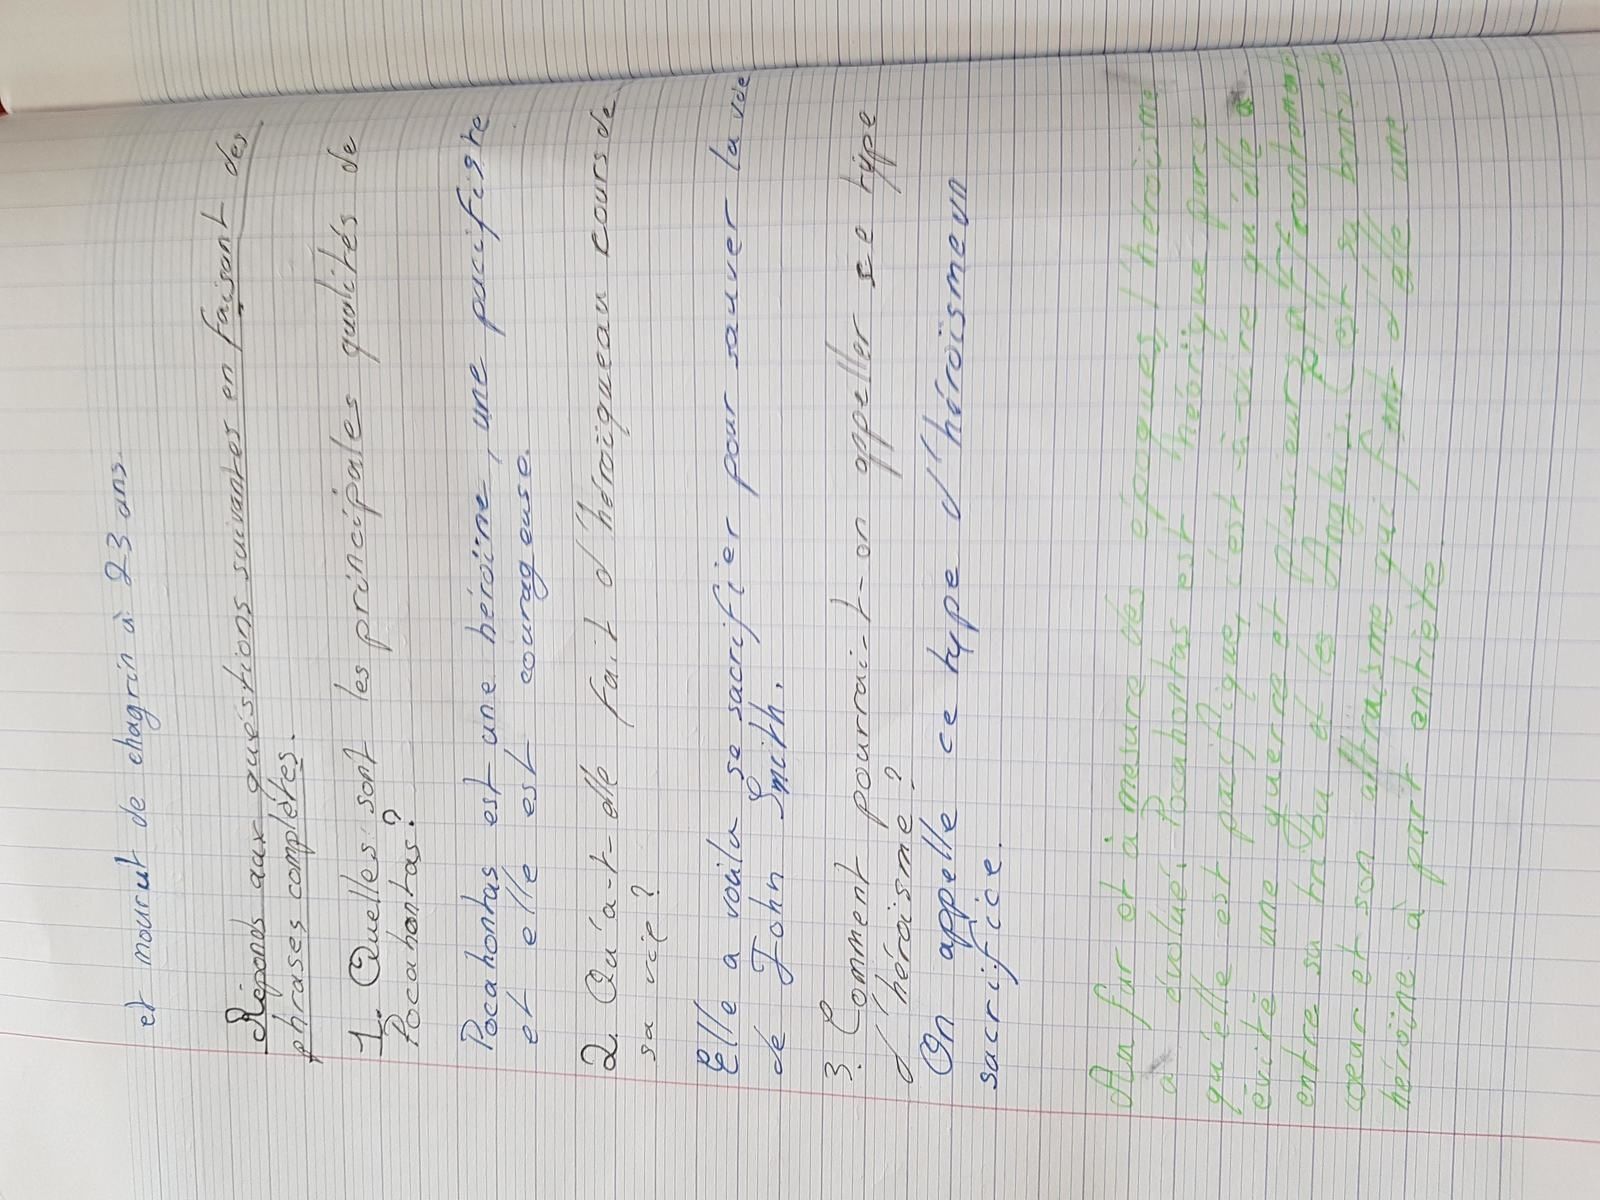 et mourut de chagrin à 23 ans.
Réponds aux quéstions suivantes en faisant des
phrases complètes.
1. Quelles sont les principales qualités de
Pocahontas?
Pocahontas est une héroïne, une pacifiste
et elle est courageuse.
2. Qu'a-t-elle fait d'héroïqueau cours de
sa vie?
Elle a voulu se sacrifier pour sauver la vie
de John Smith.
3. Comment pourrai-t-on appeller se type
d'héroïsme?
On appelle ce type d'héroïsmeun
sacrifice.
Au fur et à mesure des époques, l'héroïsme
a évolué. Pocahontas est héorïque parce
qu'elle est pacifique, c'est-à-dire qu'elle a
évité une guerre et plusieurs affrontements
entre sa tribu et les Anglais. C'est sa bonté de
coeur et son altruisme qui font d'elle une
héroïne à part entière.